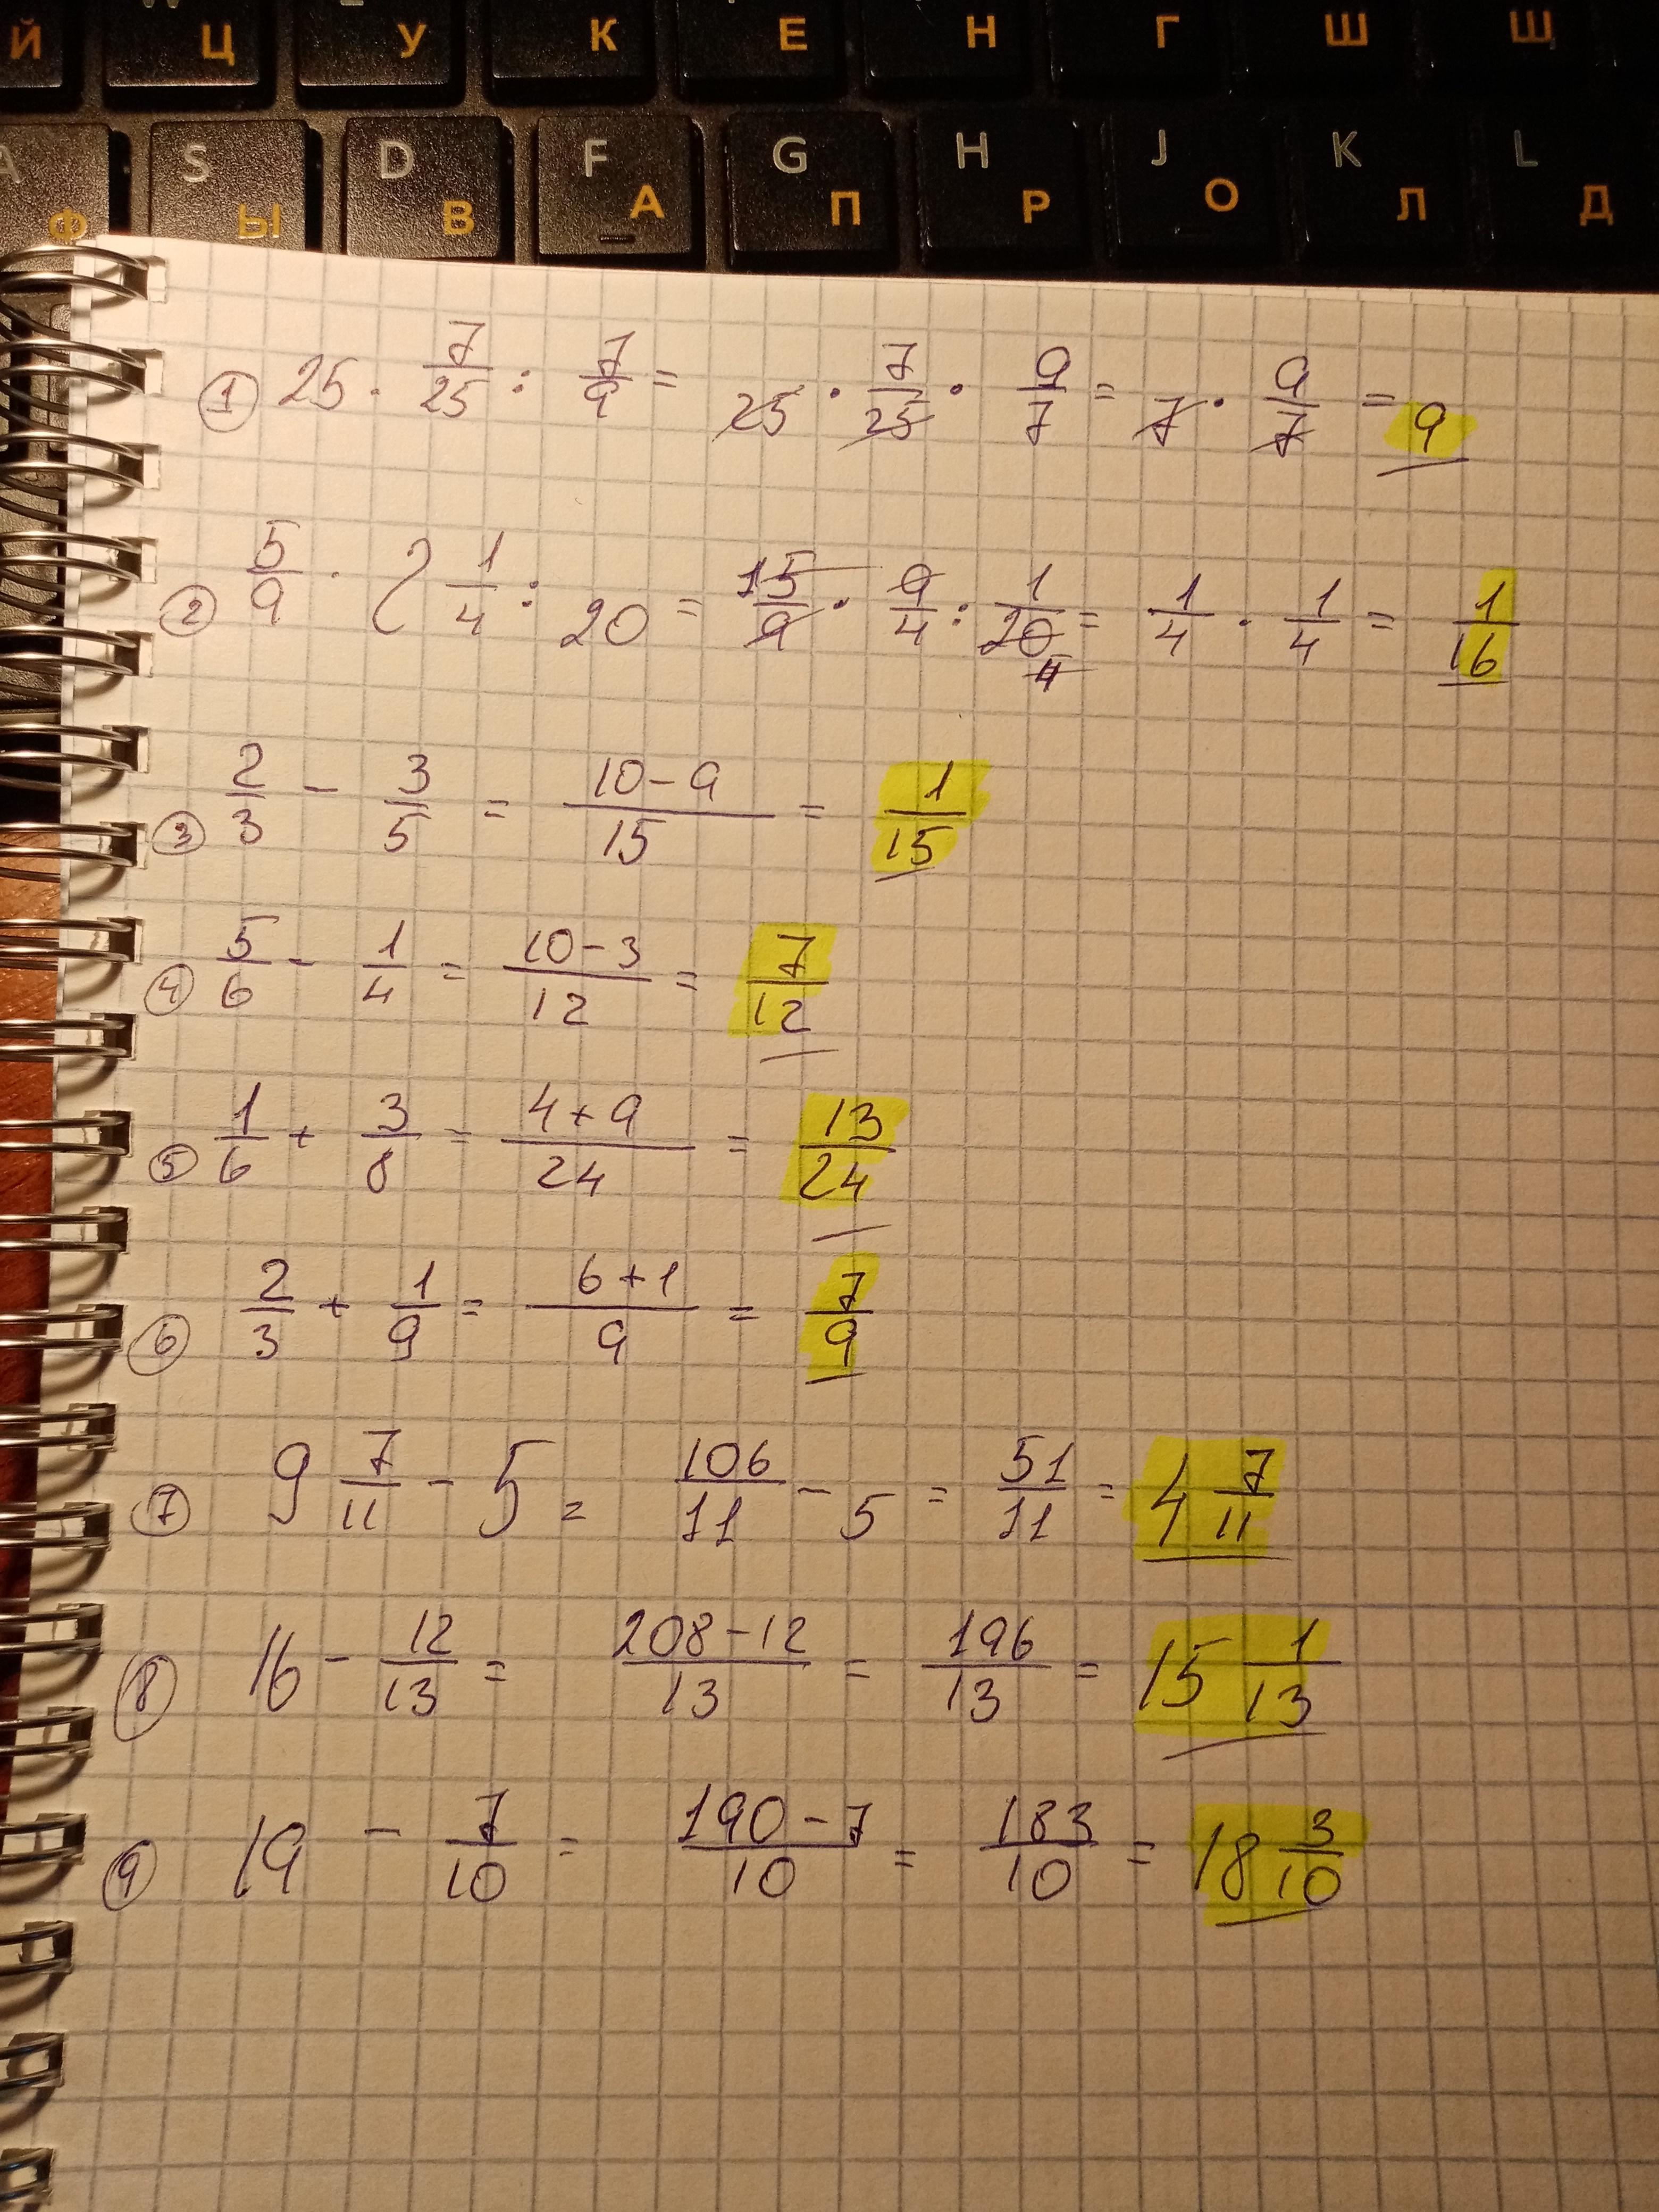 Й Ц У К Е Н Г Ш Щ
A Ф S Ы D В F А G П H Р J О K Л L Д
① 25 · 7/25 : 7/9 = 25 · 7/25 · 9/7 = 7 · 9/7 = 9
② 5/9 · 2 1/4 : 20 = 15/9 · 9/4 : 1/20 4 = 1/4 · 1/4 = 1/16
③ 2/3 - 3/5 = 10-9/15 = 1/15
④ 5/6 - 1/4 = 10-3/12 = 7/12
⑤ 1/6 + 3/8 = 4+9/24 = 13/24
⑥ 2/3 + 1/9 = 6+1/9 = 7/9
⑦ 9 7/11 - 5 = 106/11 - 5 = 51/11 = 4 7/11
⑧ 16 - 12/13 = 208-12/13 = 196/13 = 15 1/13
⑨ 19 - 7/10 = 190-7/10 = 183/10 = 18 3/10